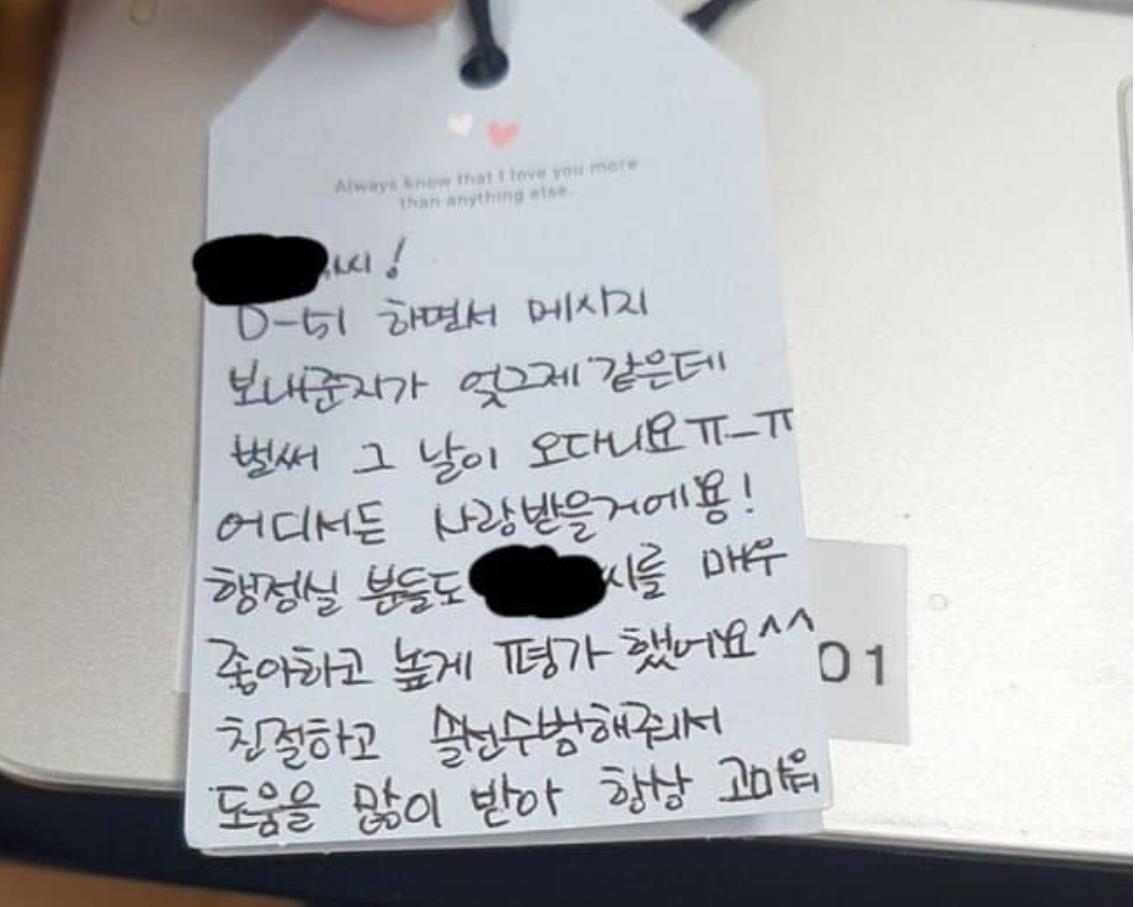 Always know that I love you more
than anything else.
씨!
D-51 하면서 메시지
보내준지가 엊그제 같은데
벌써 그 날이 오다니요 ㅠ_ㅠ
어디서든 사랑받을거에용!
행정실 분들도 씨를 매우
좋아하고 높게 평가 했어요^^
친절하고 솔선수범해주셔서
도움을 많이 받아 항상 고마워
01